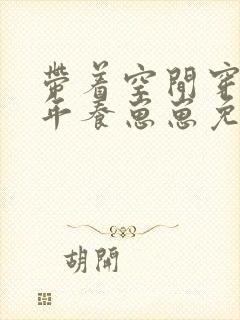 帶着空間穿
年養崽崽免
胡開